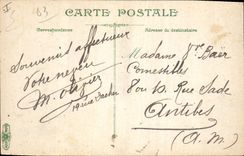 63
CARTE POSTALE
Correspondance
Adresse du destinataire
Souvenir affectueux
Votre neveu
Madame Vve Baer
Comestibles
8 ou 10 Rue Sade
Antibes
(A. M.)